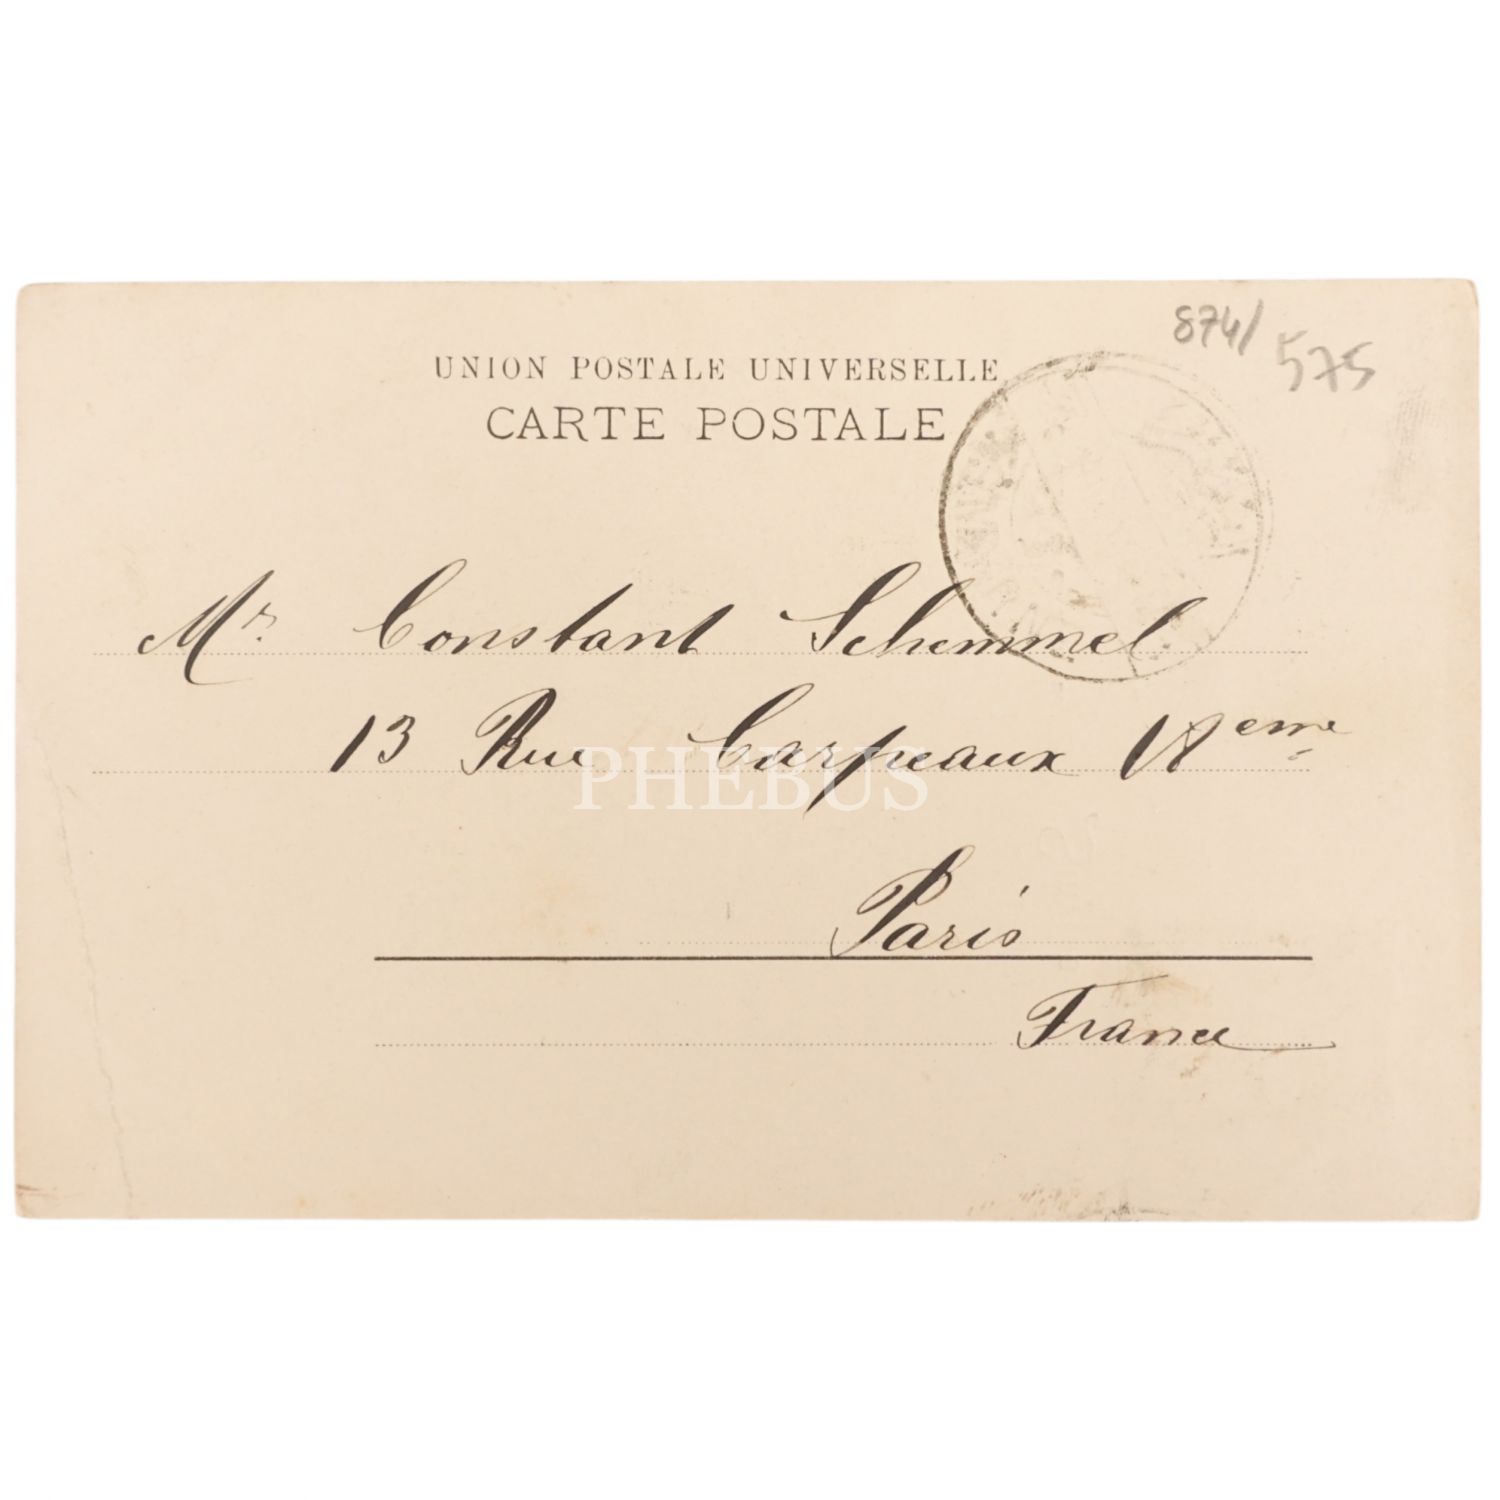 874/
575
UNION POSTALE UNIVERSELLE
CARTE POSTALE
Mr. Constant Schemmel
13 Rue Carpeaux 18eme
PHEBUS
Paris
France